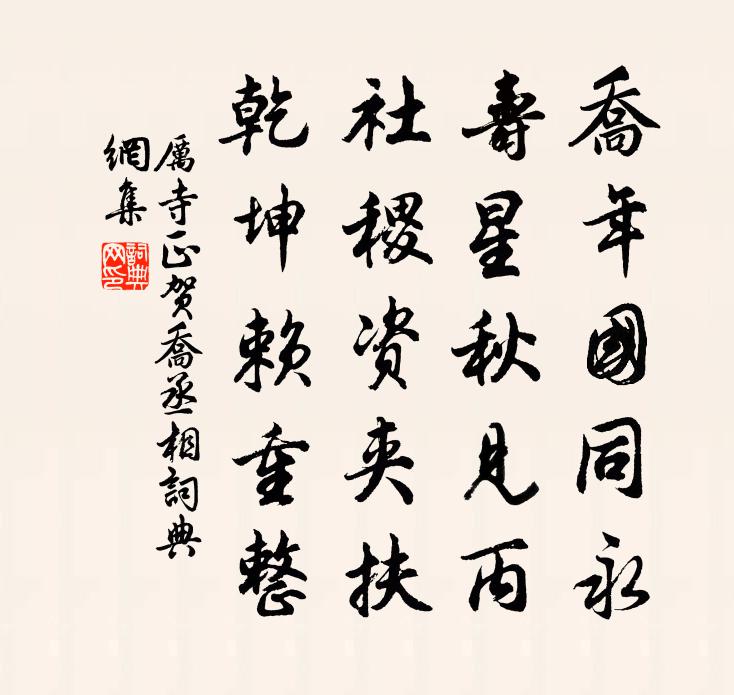 喬年國同永
壽星秋見丙
社稷資夾扶
乾坤賴重整
厲寺正賀喬丞相詞典
網集
詞典網印